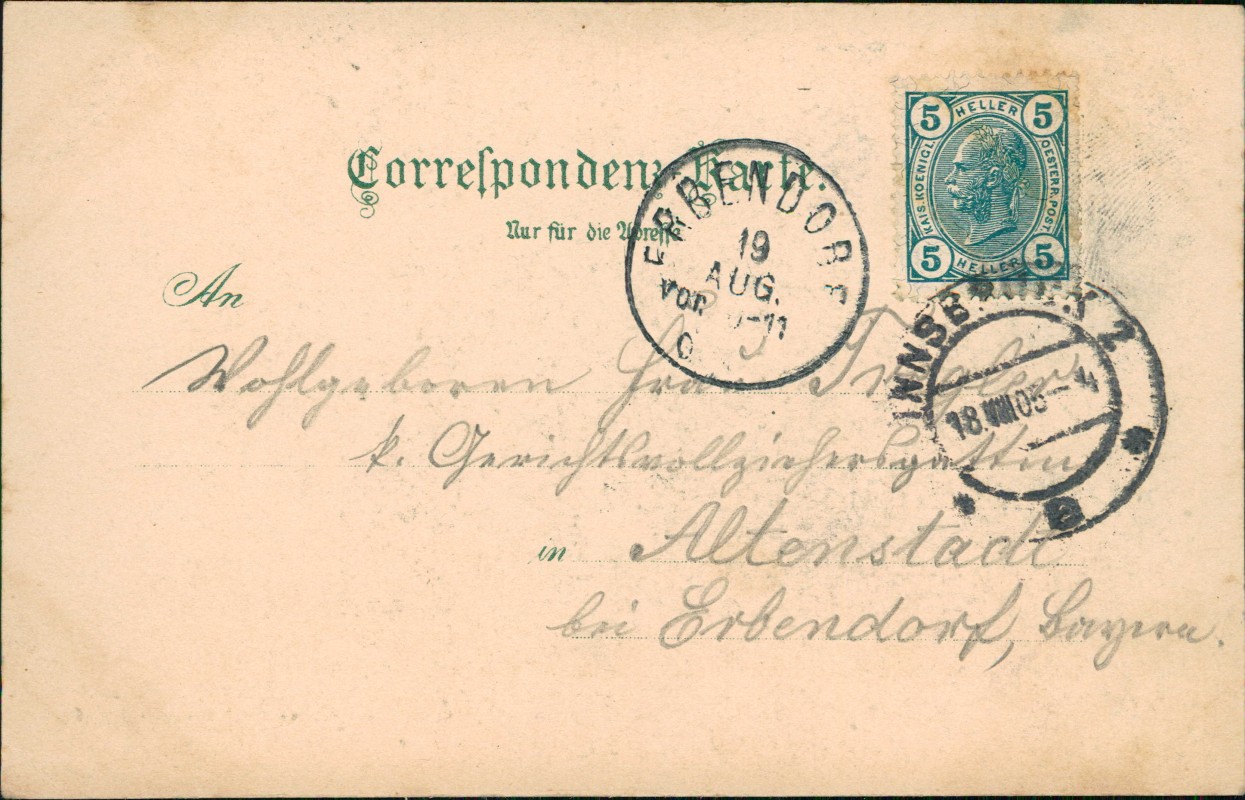 Correspondenz-Karte.
Nur für die Adresse
5 HELLER 5
KAIS. KOENIGL. OESTERR. POST
5 HELLER 5
ERBENDORF
19
AUG.
Vor -11
INNSBRUCK 2
18.VIII 05-4
An
Wohlgeboren Frau
k. Gerichtsvollziehersgattin
in Altenstadt
bei Erbendorf, Bayern.